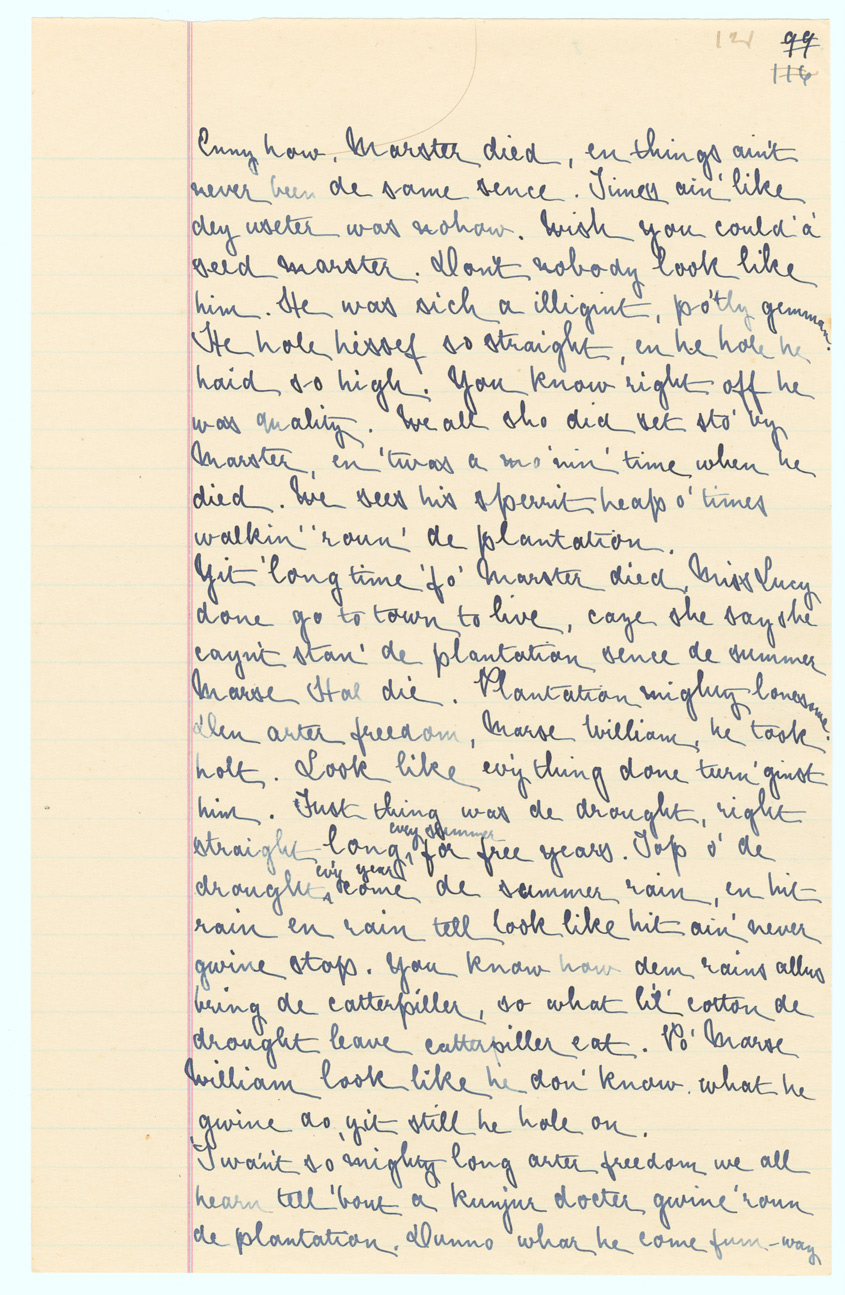 121 99
116
Enny how, Marster died, en things ain't
never been de same sence. Times ain' like
dey useter was nohow. Wish you could 'a'
seed marster. Don't nobody look like
him. He was sich a illigint, po'tly gemman.
He hole hissef so straight, en he hole he
haid so high. You know right off he
was quality. We all sho did set sto' by
Marster, en 'twas a mo'nin' time when he
died. We sees his sperrit heap o' times
walkin' 'roun' de plantation.
Yit 'long time 'fo' Marster died, Miss Lucy
done go to town to live, caze she say she
cayn't stan' de plantation sence de summer
Marse Hal die. Plantation mighty lonesome.
Den arter freedom, Marse William, he took
holt. Look like ev'y thing done turn 'ginst
him. Fust thing was de drought, right
every summer
straight long, for free years. Top o' de
ev'y year
drought, come de summer rain, en hit
rain en rain tell look like hit ain' never
gwine stop. You know how dem rains allus
bring de catterpiller, so what li'l' cotton de
drought leave catterpiller eat. Po' Marse
William look like he don' know what he
gwine do, yit still he hole on.
'Twa'n't so mighty long arter freedom we all
hearn tell 'bout a kunjur docter gwine 'roun
de plantation. Dunno whar he come fum-way